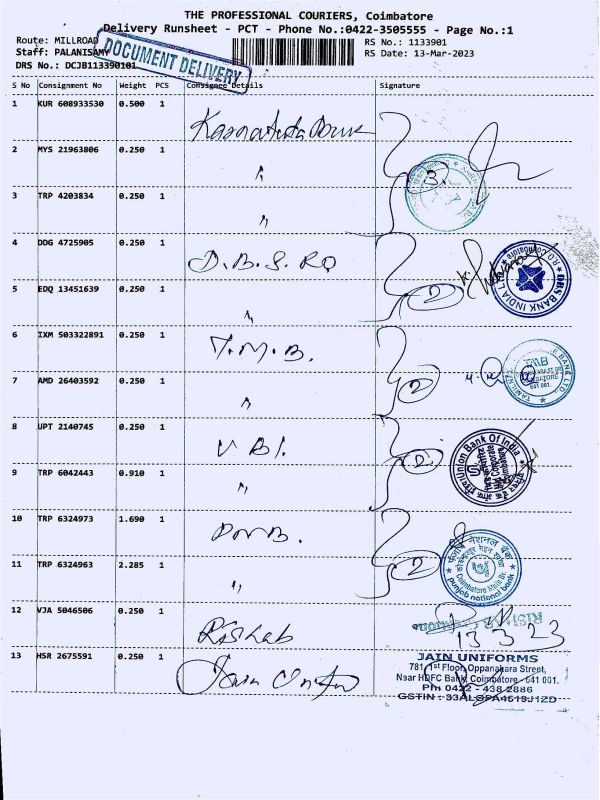 THE PROFESSIONAL COURIERS, Coimbatore
Delivery Runsheet - PCT - Phone No.:0422-3505555 - Page No.:1
Route: MILLROAD
RS No.: 1133901
Staff: PALANISAMY
RS Date: 13-Mar-2023
DRS No.: DCJB113390101
DOCUMENT DELIVERY
S No Consignment No Weight PCS Consignee Details Signature
1 KUR 608933530 0.500 1
2 MYS 21963806 0.250 1 "
3 TRP 4203834 0.250 1 "
3.
4 DDG 4725905 0.250 1 D.B.S. RO
DBS BANK INDIA
R.O. Coimbatore
5 EDQ 13451639 0.250 1 "
2
6 IXM 503322891 0.250 1 T.M.B.
TMB
641 001.
7 AMD 26403592 0.250 1 "
2
8 UPT 2140745 0.250 1 UBI.
Union Bank Of India
9 TRP 6042443 0.910 1 "
2
10 TRP 6324973 1.690 1 PNB.
पंजाब नैशनल बैंक
punjab national bank
11 TRP 6324963 2.285 1 "
2
12 VJA 5046506 0.250 1 Rishab
13 3 23
13 HSR 2675591 0.250 1 Jain
JAIN UNIFORMS
781, 1st Floor, Oppanakara Street,
Near HDFC Bank, Coimbatore - 641 001.
Ph: 0422 - 438 2886